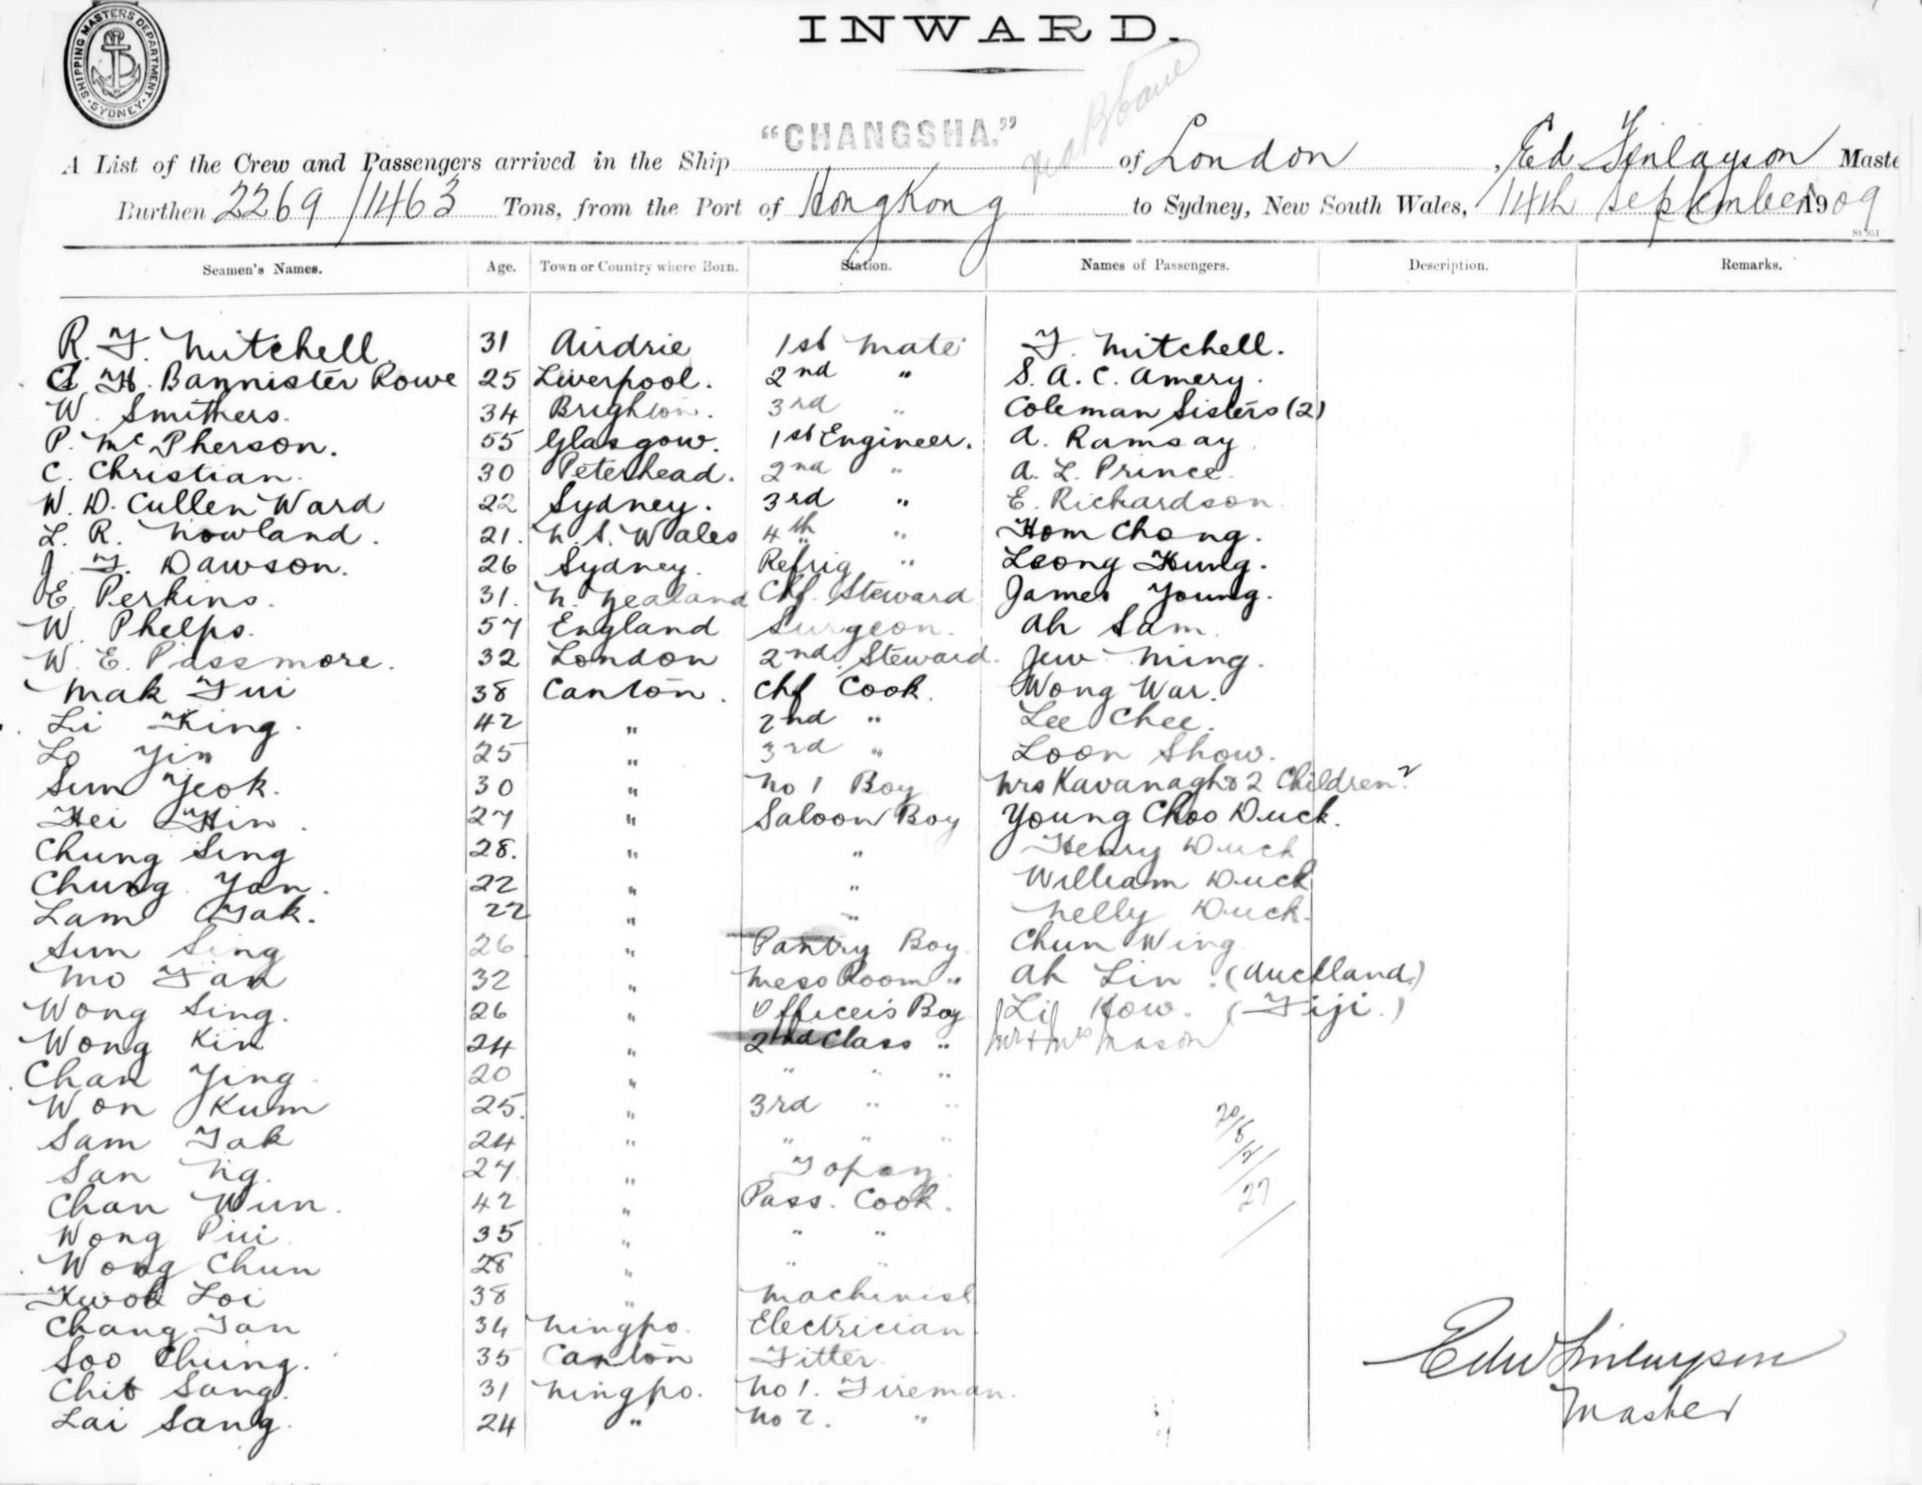 INWARD.
SHIPPING MASTERS DEPARTMENT SYDNEY
via Bbane
A List of the Crew and Passengers arrived in the Ship "CHANGSHA." of London, Ed Finlayson Maste
Burthen 2269/1463 Tons, from the Port of HongKong to Sydney, New South Wales, 14th September 1909
Seamen's Names. Age. Town or Country where Born. Station. Names of Passengers. Description. Remarks.
R. F. Mitchell. 31 Airdrie 1st Mate F. Mitchell.
H. Bannister Rowe 25 Liverpool. 2nd " S. A. C. Amery.
W. Smithers. 34 Brighton. 3rd " Coleman Sisters (2)
P. McPherson. 55 Glasgow. 1st Engineer. A. Ramsay
C. Christian. 30 Peterhead. 2nd " A. L. Prince.
W. D. Cullen Ward 22 Sydney. 3rd " E. Richardson.
L. R. Nowland. 21. N. S. Wales 4th " Hom Chong.
J. F. Dawson. 26 Sydney. Refrig " Leong Hung.
E. Perkins. 31. N. Zealand Chf. Steward James Young.
W. Phelps. 57 England Surgeon. Ah Sam.
W. E. Passmore. 32 London 2nd Steward. Jew Ming.
Mak Fui 38 Canton. Chf Cook. Wong War.
Li King. 42 " 2nd " Lee Chee.
Lo Yin 25 " 3rd " Loon Show.
Sun Yeok. 30 " No 1 Boy Mrs Kavanagh & 2 Children
Hei Hin. 27 " Saloon Boy Young Choo Duck.
Chung Sing 28. " " Henry Duck
Chung Yan. 22 " " William Duck
Lam Tak. 22 " " Nelly Duck.
Sun Sing 26 " Pantry Boy. Chun Wing
Mo Fan 32 " Mess Room " Ah Lin. (Auckland)
Wong Sing. 26 " Officers Boy Li Kow. (Fiji.)
Wong Kin 24 " 2nd Class " Mr & Mrs Mason
Chan Ying 20 " " " "
Won Kum 25. " 3rd " "
Sam Tak 24 " " " "
San Ng. 27 " Topaz.
Chan Wun. 42 " Pass. Cook.
Wong Pui 35 " " "
Wong Chun 28 " " "
Kwok Loi 38 " Machinist
Chang Tan 34 Ningpo. Electrician
Soo Chung. 35 Canton Fitter.
Chit Sang. 31 Ningpo. No 1. Fireman.
Lai Sang. 24 " No 2. "
20/5/2/27
Edw Finlayson
Master